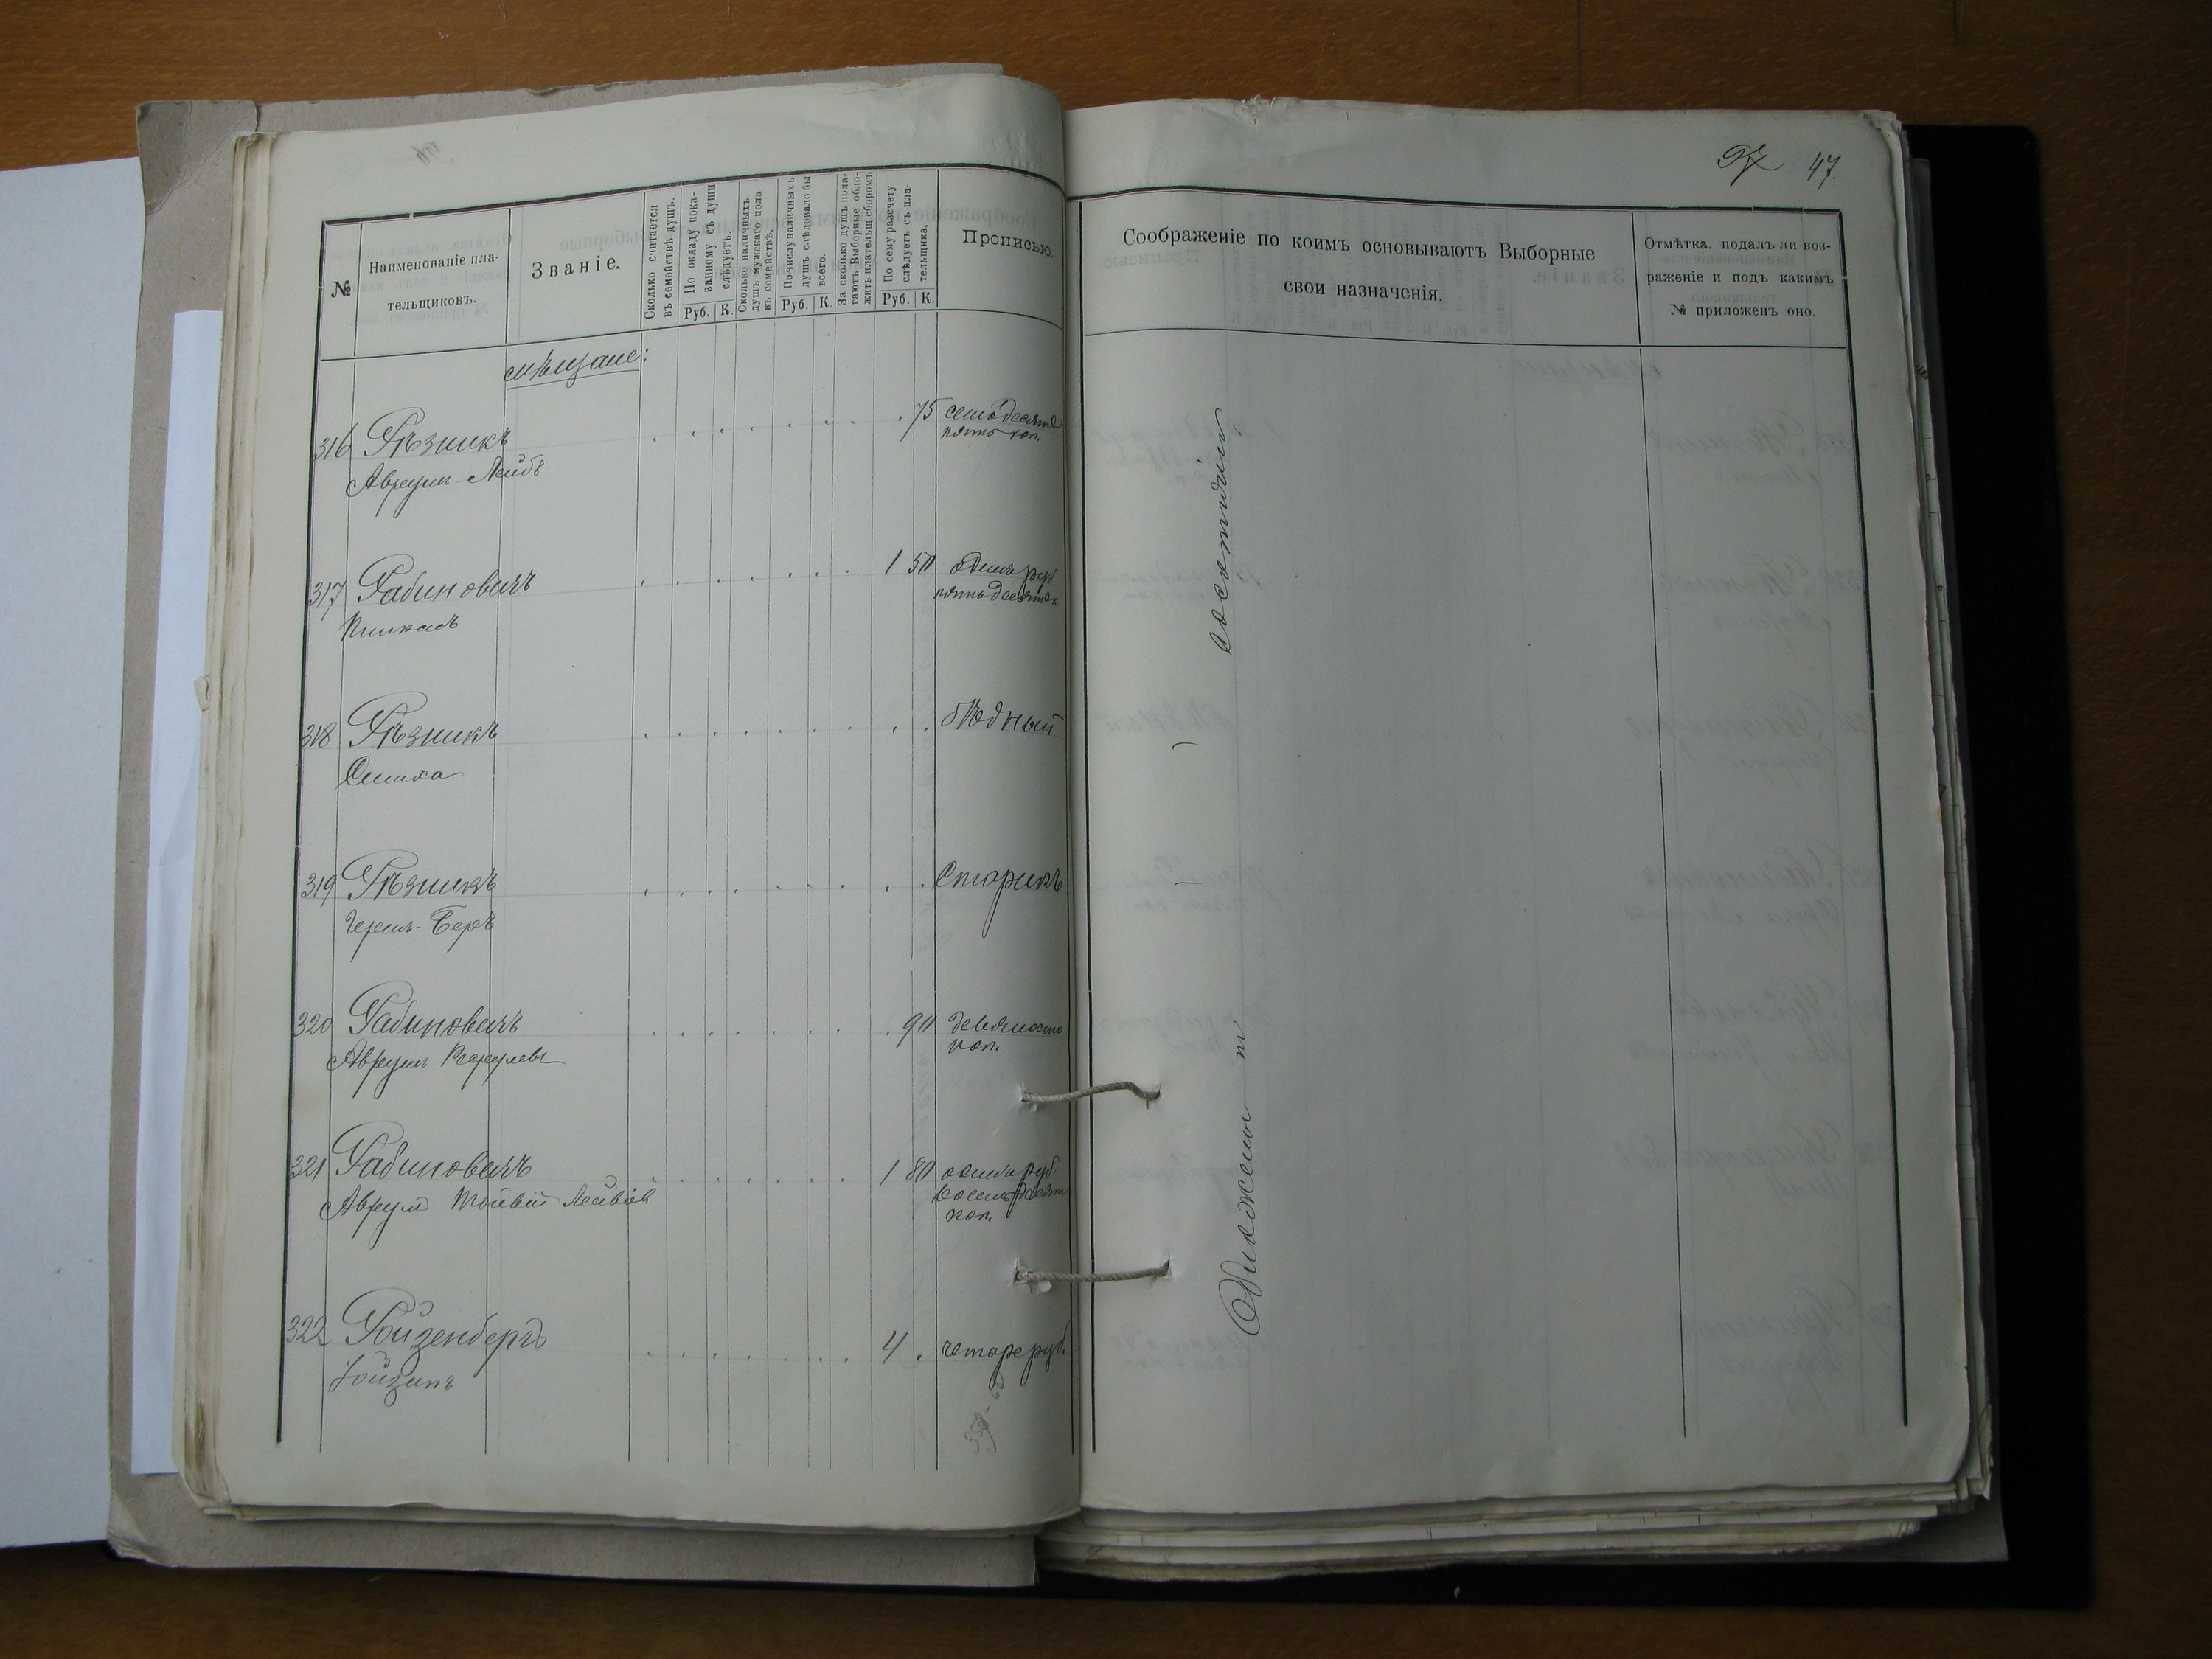 97 47.
№
Наименованіе пла-
тельщиковъ.
Званіе.
Сколько считается
въ семействѣ душъ.
По окладу пока-
занному съ души
слѣдуетъ.
Руб. К.
Сколько наличныхъ
душъ мужскаго пола
въ семействѣ.
По числу наличныхъ
душъ слѣдовало бы
всего.
Руб. К.
За сколько душъ пола-
гаютъ Выборные обло-
жить плательщ. сборомъ
По сему расчету
слѣдуетъ съ пла-
тельщика.
Руб. К.
Прописью.
Соображеніе по коимъ основываютъ Выборные
свои назначенія.
Отмѣтка, подалъ ли воз-
раженіе и подъ какимъ
№ приложенъ оно.
мѣщане:
316 Рѣзникъ 75 семьдесятъ
Аврумъ-Лейбъ пять коп.
317 Рабиновичъ 1 50 одинъ руб
Пинкасъ пятьдесятъ к
318 Рѣзникъ бѣдный
Симха
319 Рѣзникъ Старикъ
Гершъ-Беръ
320 Рабиновичъ 90 девяносто
Аврумъ коп.
321 Рабиновичъ 1 80 одинъ руб.
Аврум восемьдесят
коп.
322 Ройзенбергъ 4 четыре руб.
Обложены по состоянію